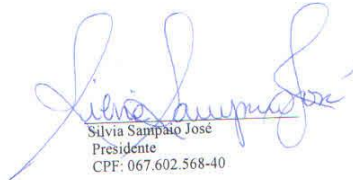 Silvia Sampaio José
Silvia Sampaio José
Presidente
CPF: 067.602.568-40